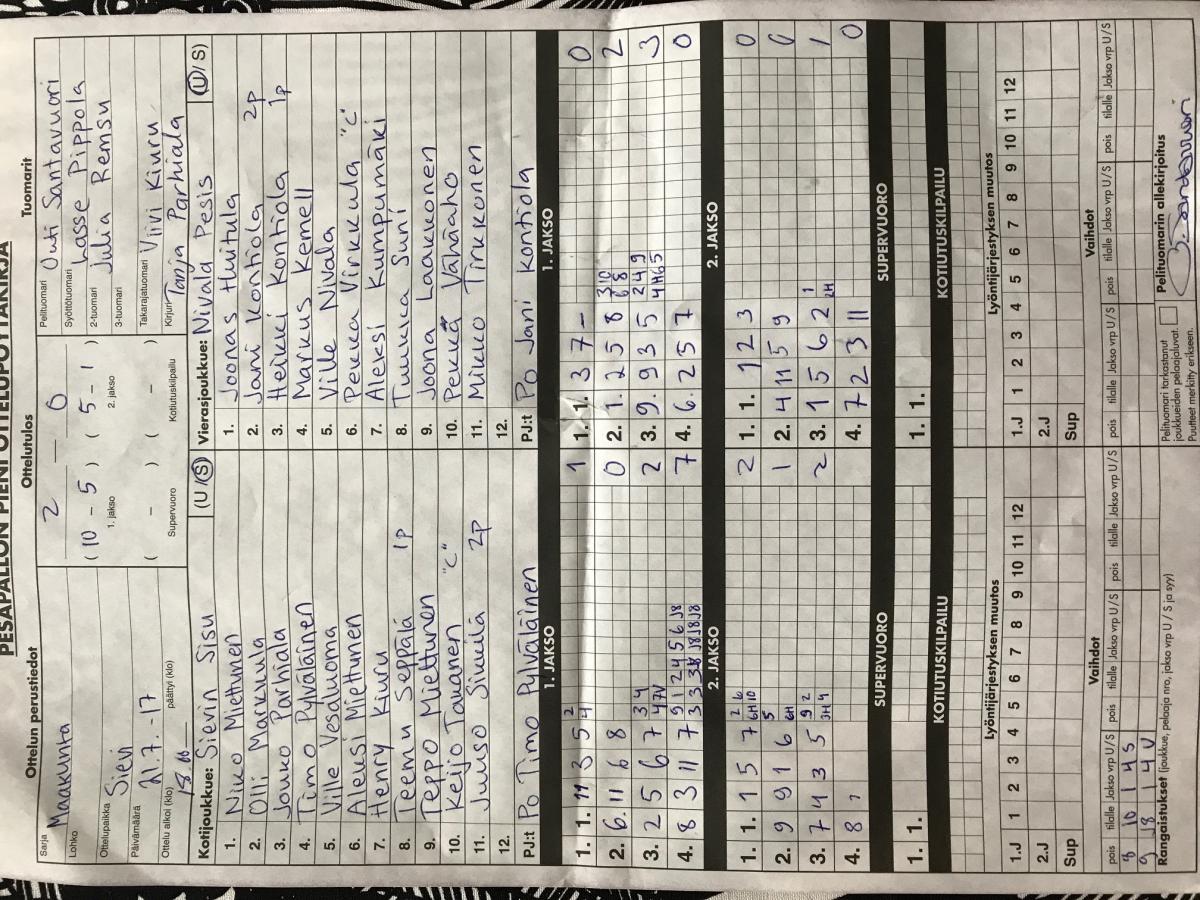 PESÄPALLON PIENI OTTELUPÖYTÄKIRJA
Ottelun perustiedot
Sarja
Maakunta
Lohko
Ottelupaikka
Sievi
Päivämäärä
21.7.-17
Ottelu alkoi (klo) päättyi (klo)
18.00
Ottelutulos
2 — 0
( 10 - 5 ) ( 5 - 1 )
1. jakso 2. jakso
( - ) ( - )
Supervuoro Kotiutuskilpailu
Tuomarit
Pelituomari Outi Santavuori
Syöttötuomari Lasse Pippola
2-tuomari Julia Remsu
3-tuomari
Takarajatuomari Viivi Kiuru
Kirjuri Tanja Parhiala
Kotijoukkue: Sievin Sisu (U/S)
1. Niko Miettunen
2. Olli Markkula
3. Jouko Parhiala
4. Timo Pylväläinen
5. Ville Vesaluoma
6. Aleksi Miettunen
7. Henry Kiuru
8. Teemu Seppälä 1p
9. Teppo Miettunen
10. Keijo Tavanen "C"
11. Juuso Simila 2p
12.
PJ:t Po Timo Pylväläinen
Vierasjoukkue: Nivala Pesis (U/S)
1. Joonas Huitula
2. Jani Kontiola 2p
3. Heikki Kontiola 1p
4. Markus Kemell
5. Ville Nivala
6. Pekka Virkkula "C"
7. Aleksi Kumpumäki
8. Tuukka Suni
9. Joona Laakkonen
10. Pekka Vähäaho
11. Mikko Tirkkonen
12.
PJ:t Po Jani Kontiola
1. JAKSO
1. 1. 11 3 5 4 2 1
2. 6. 11 6 8 0
3. 2 5 6 7 4 7V 3 4 2
4. 8 3 11 7 9 1 2 4 5 6 J8 7
1. JAKSO
1. 1. 3 7 - 0
2. 1. 2 5 8 6 8 3 10 2
3. 9. 9 3 5 2 4 9 4 H6 5 3
4. 6. 2 5 7 0
2. JAKSO
1. 1. 1 5 7 6H 10 2 6 2
2. 9 9 1 6 6H 5 1
3. 7 4 3 5 9 2 3H 4 2
4. 8
2. JAKSO
1. 1. 1 2 3 0
2. 4 11 5 9 0
3. 1 5 6 2 2H 1 1
4. 7 2 3 11 0
SUPERVUORO
1. 1.
SUPERVUORO
1. 1.
KOTIUTUSKILPAILU
KOTIUTUSKILPAILU
Lyöntijärjestyksen muutos
1.J 1 2 3 4 5 6 7 8 9 10 11 12
2.J
Sup
Lyöntijärjestyksen muutos
1.J 1 2 3 4 5 6 7 8 9 10 11 12
2.J
Sup
Vaihdot
pois tilalle Jakso vrp U/S pois tilalle Jakso vrp U/S pois tilalle Jakso vrp U/S
8 10 1 4 S
9 J8 1 4 U
Vaihdot
pois tilalle Jakso vrp U/S pois tilalle Jakso vrp U/S pois tilalle Jakso vrp U/S
Rangaistukset (joukkue, pelaaja nro, jakso vrp U / S ja syy)
Pelituomari tarkastanut
joukkueiden pelaajaluvat.
Puutteet merkitty erikseen.
Pelituomarin allekirjoitus